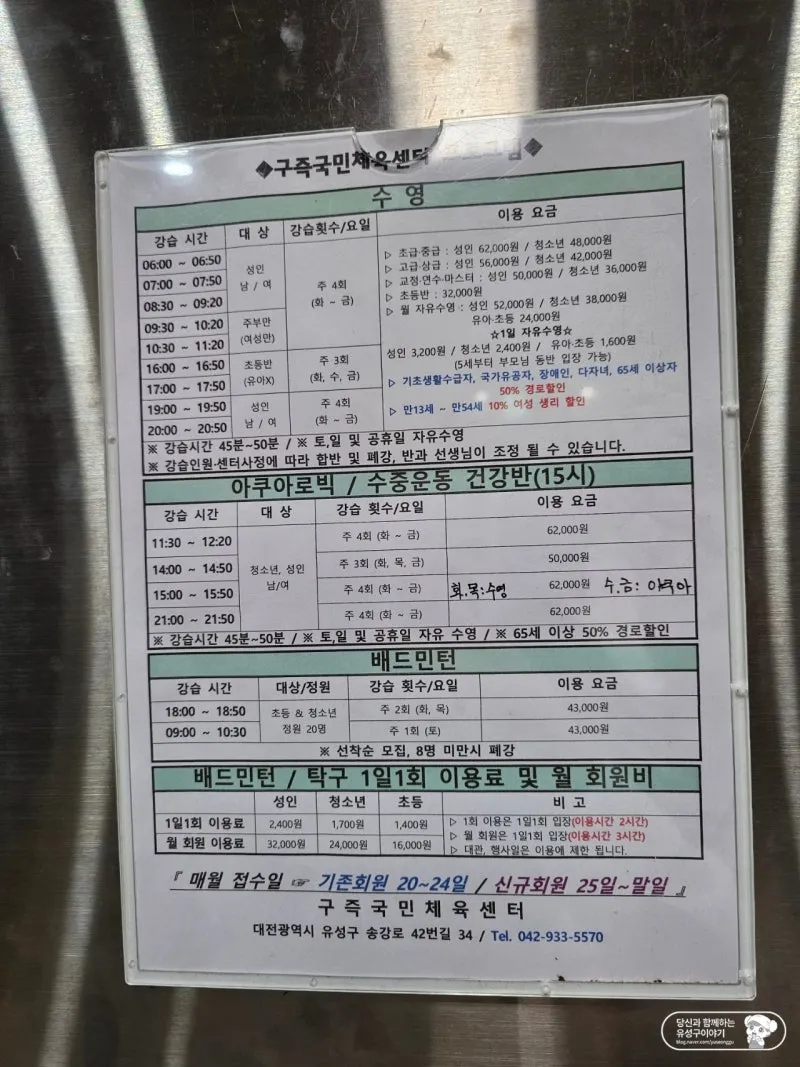 ◆구즉국민체육센터 프로그램◆
수 영
강습 시간 대 상 강습횟수/요일 이용 요금
06:00 ~ 06:50 성인 남 / 여 주 4회 (화 ~ 금)
07:00 ~ 07:50
08:30 ~ 09:20
09:30 ~ 10:20 주부만 (여성만)
10:30 ~ 11:20
16:00 ~ 16:50 초등반 (유아X) 주 3회 (화, 수, 금)
17:00 ~ 17:50
19:00 ~ 19:50 성인 남 / 여 주 4회 (화 ~ 금)
20:00 ~ 20:50
▷ 초급·중급 : 성인 62,000원 / 청소년 48,000원
▷ 고급·상급 : 성인 56,000원 / 청소년 42,000원
▷ 교정·연수·마스터 : 성인 50,000원 / 청소년 36,000원
▷ 초등반 : 32,000원
▷ 월 자유수영 : 성인 52,000원 / 청소년 38,000원
유아·초등 24,000원
☆1일 자유수영☆
성인 3,200원 / 청소년 2,400원 / 유아·초등 1,600원
(5세부터 부모님 동반 입장 가능)
▷ 기초생활수급자, 국가유공자, 장애인, 다자녀, 65세 이상자
50% 경로할인
▷ 만13세 ~ 만54세 10% 여성 생리 할인
※ 강습시간 45분~50분 / ※ 토,일 및 공휴일 자유수영
※ 강습인원·센터사정에 따라 합반 및 폐강, 반과 선생님이 조정 될 수 있습니다.
아쿠아로빅 / 수중운동 건강반(15시)
강습 시간 대 상 강습 횟수/요일 이용 요금
11:30 ~ 12:20 청소년, 성인 남/여 주 4회 (화 ~ 금) 62,000원
14:00 ~ 14:50 주 3회 (화, 목, 금) 50,000원
15:00 ~ 15:50 주 4회 (화 ~ 금) 화.목:수영 62,000원 수.금: 아쿠아
21:00 ~ 21:50 주 4회 (화 ~ 금) 62,000원
※ 강습시간 45분~50분 / ※ 토,일 및 공휴일 자유 수영 / ※ 65세 이상 50% 경로할인
배드민턴
강습 시간 대상/정원 강습 횟수/요일 이용 요금
18:00 ~ 18:50 초등 & 청소년 정원 20명 주 2회 (화, 목) 43,000원
09:00 ~ 10:30 주 1회 (토) 43,000원
※ 선착순 모집, 8명 미만시 폐강
배드민턴 / 탁구 1일1회 이용료 및 월 회원비
성인 청소년 초등 비 고
1일1회 이용료 2,400원 1,700원 1,400원
월 회원 이용료 32,000원 24,000원 16,000원
▷ 1회 이용은 1일1회 입장(이용시간 2시간)
▷ 월 회원은 1일1회 입장(이용시간 3시간)
▷ 대관, 행사일은 이용에 제한 됩니다.
『 매월 접수일 ☞ 기존회원 20~24일 / 신규회원 25일~말일 』
구 즉 국 민 체 육 센 터
대전광역시 유성구 송강로 42번길 34 / Tel. 042-933-5570
당신과 함께하는
유성구이야기
blog.naver.com/yuseonggu